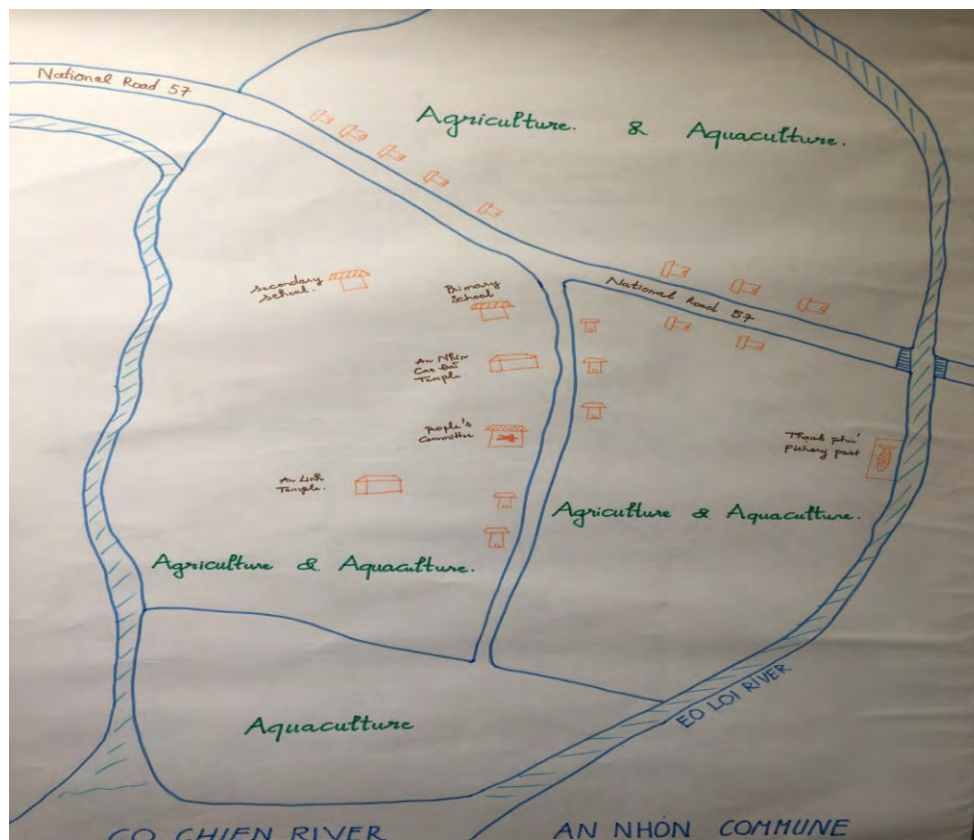 National Road 57
Agriculture. & Aquaculture.
Secondary
School.
Primary
School
National Road 57
An Nhơn
Cao Đài
Temple
People's
Committee
Thạnh phú
Fishery port
An Linh
Temple.
Agriculture & Aquaculture.
Agriculture & Aquaculture.
Aquaculture
EO LOI RIVER
CO CHIEN RIVER
AN NHƠN COMMUNE